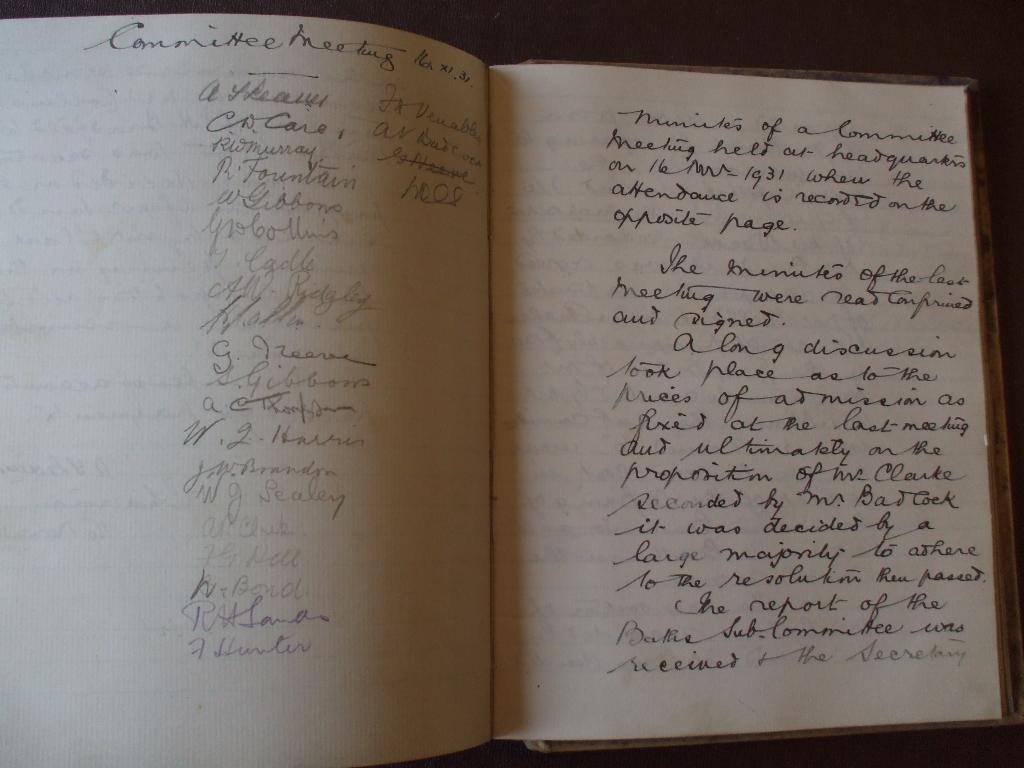 Committee Meeting 16.XI.31.
A Stearn
C.D. Care,
R.W. Murray
R. Fountain
W Gibbons
G W Collins
T Cadle
A.W. Sedgley
G. Treeve
S Gibbons
A. C Thompson
W. J. Harris
J.W. Brandon
W J Sealey
F G Hall
W. Bond
R H Sands
F Hunter
F H Venables
A V Badcock
Minutes of a Committee
Meeting held at headquarters
on 16 Nov 1931 when the
attendance is recorded on the
opposite page.
The minutes of the last
meeting were read confirmed
and signed.
A long discussion
took place as to the
prices of admission as
fixed at the last meeting
and ultimately on the
proposition of Mr Clarke
seconded by Mr Badcock
it was decided by a
large majority to adhere
to the resolution then passed.
The report of the
Baths Sub-Committee was
received & the Secretary